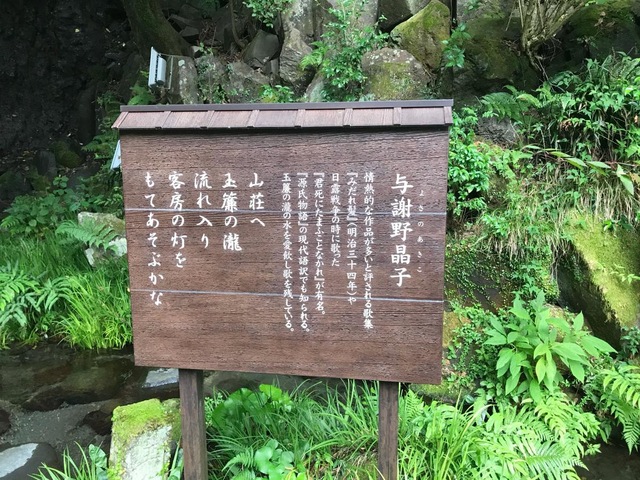 よさのあきこ
与謝野晶子
情熱的な作品が多いと評される歌集
『みだれ髪』（明治三十四年）や
日露戦争の時に歌った
『君死にたまふことなかれ』が有名。
『源氏物語』の現代語訳でも知られる。
玉簾の瀧の水を愛飲し歌を残している。
山荘へ
玉簾の瀧
流れ入り
客房の灯を
もてあそぶかな